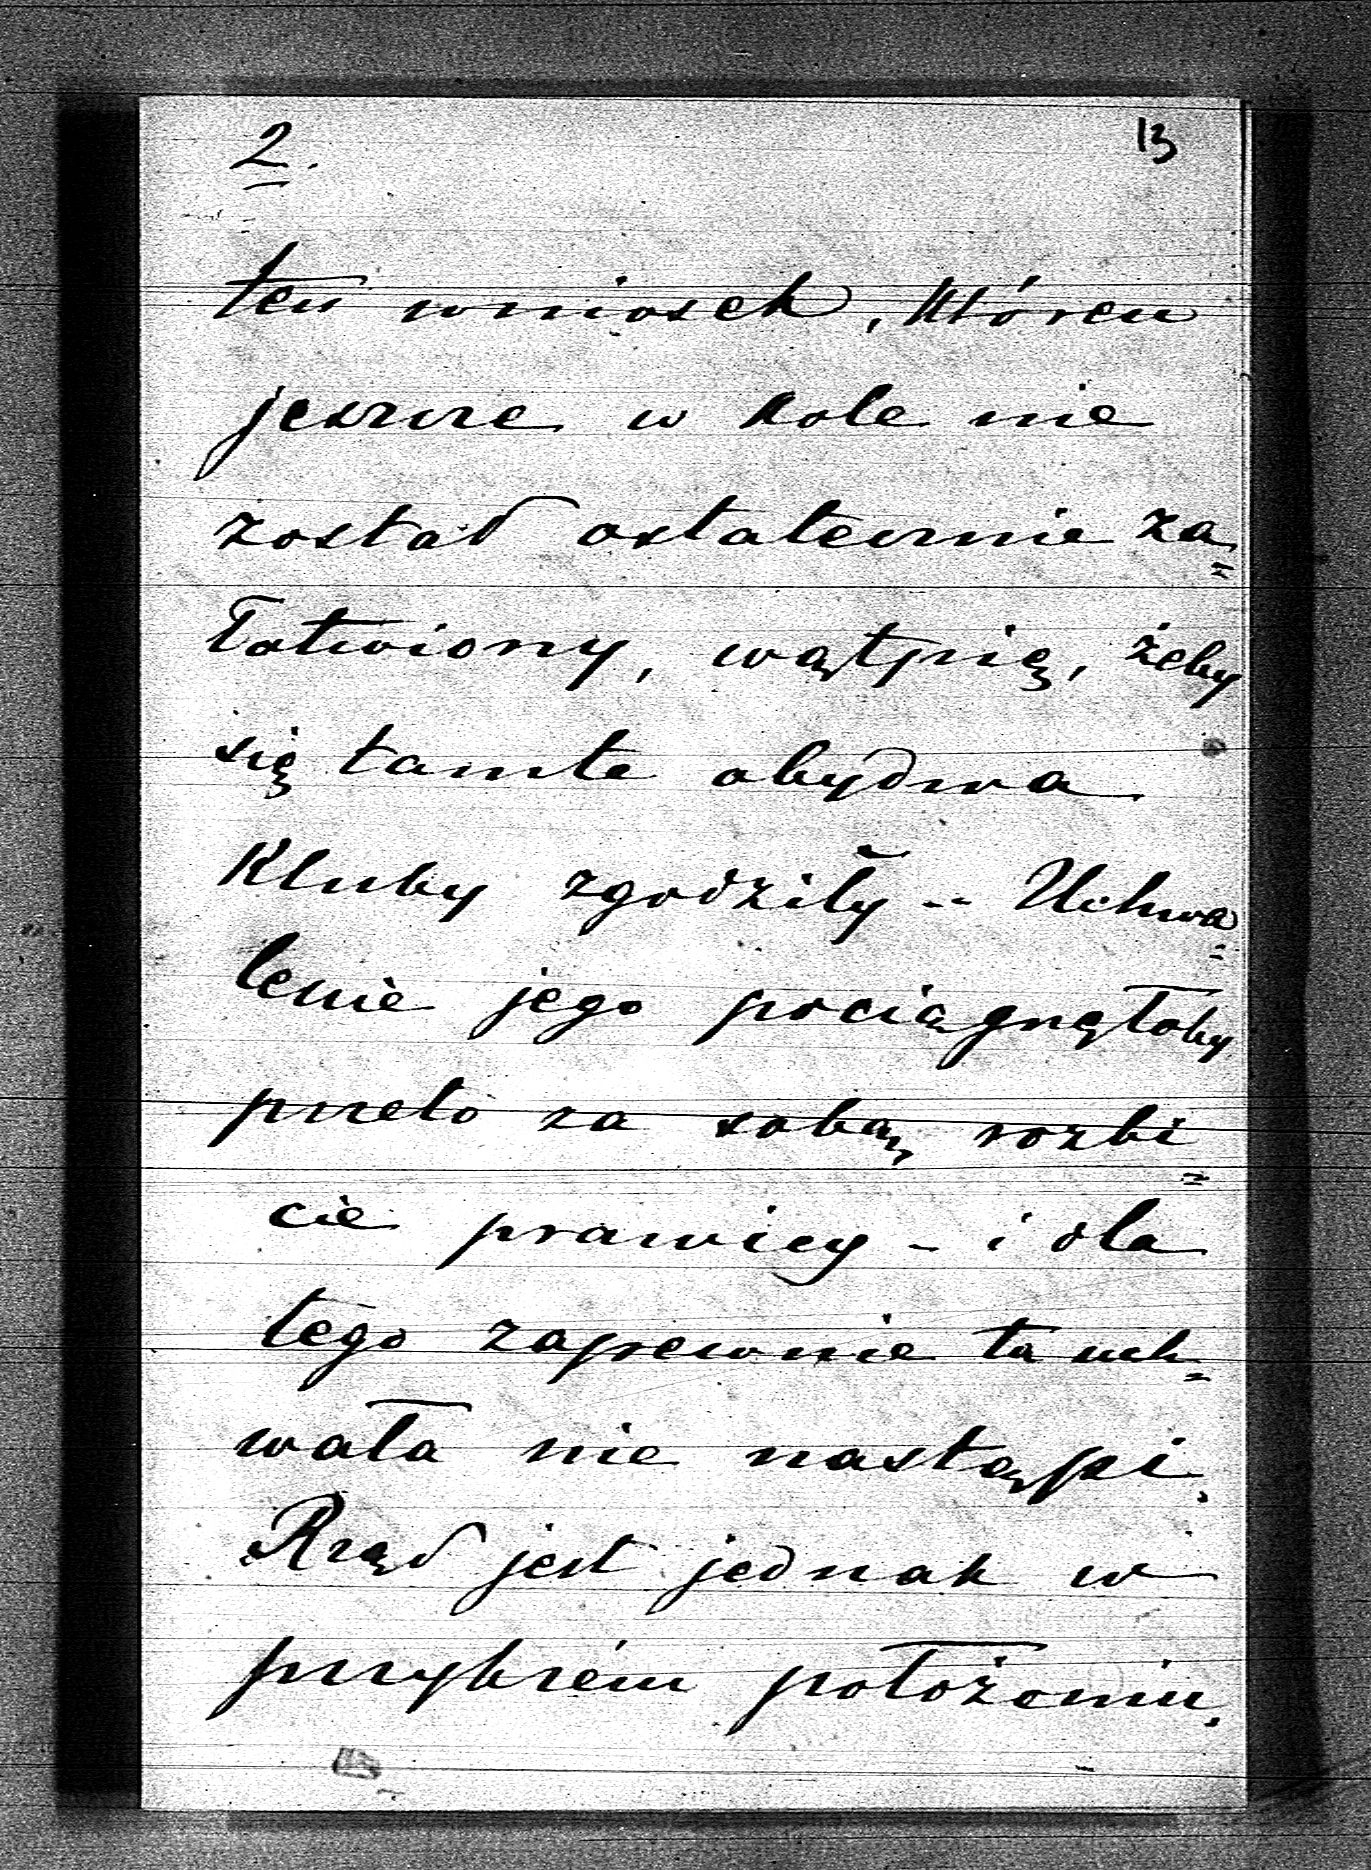 2.
13
ten wniosek, któren
jeszcze w kole nie
został ostatecznie za=
łatwiony, wątpię, żeby
się tamte obydwa
Kluby zgodziły -- Uchwa=
lenie jego pociągnęłoby
przeto za sobą rozbi=
cie prawicy - i dla
tego zapewnie ta uch=
wała nie nastąpi.
Rząd jest jednak w
przykrém położeniu,